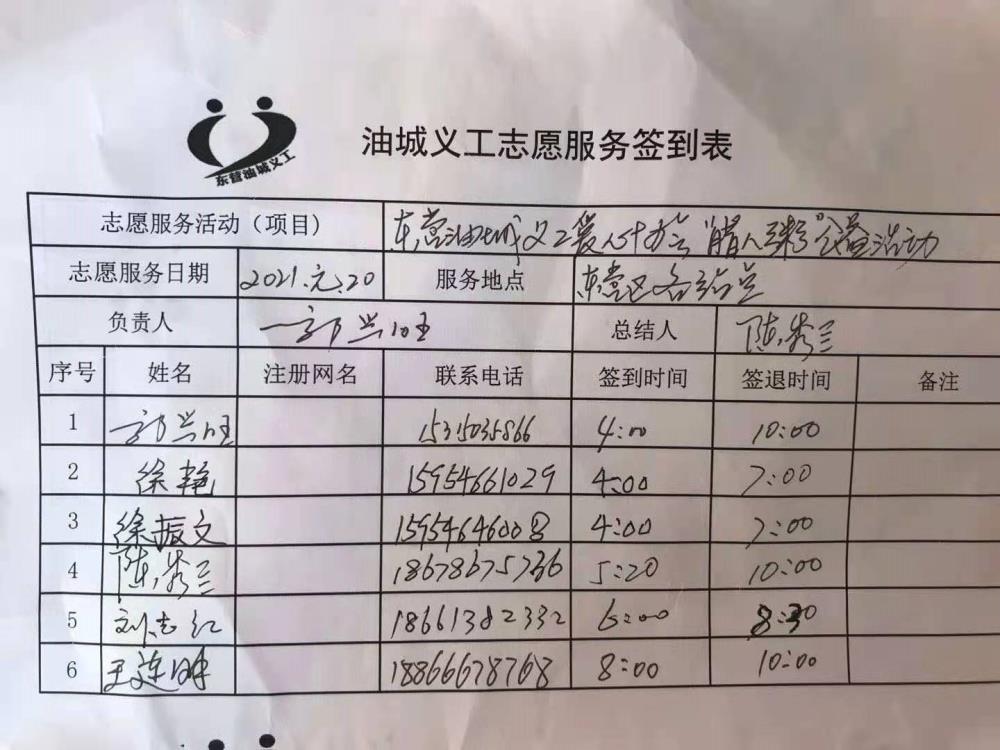 东营油城义工
油城义工志愿服务签到表
志愿服务活动（项目） 东营油城义工爱心 "腊八粥" 活动
志愿服务日期 2021.元.20 服务地点 东营区各站点
负责人 郭兴旺 总结人 陈秀兰
序号 姓名 注册网名 联系电话 签到时间 签退时间 备注
1 郭兴旺 15315035866 4:00 10:00
2 徐艳 15954661029 4:00 7:00
3 徐振文 15954646008 4:00 7:00
4 陈秀兰 18678675736 5:20 10:00
5 刘志红 18661382332 6:00 8:30
6 王连 18866678768 8:00 10:00